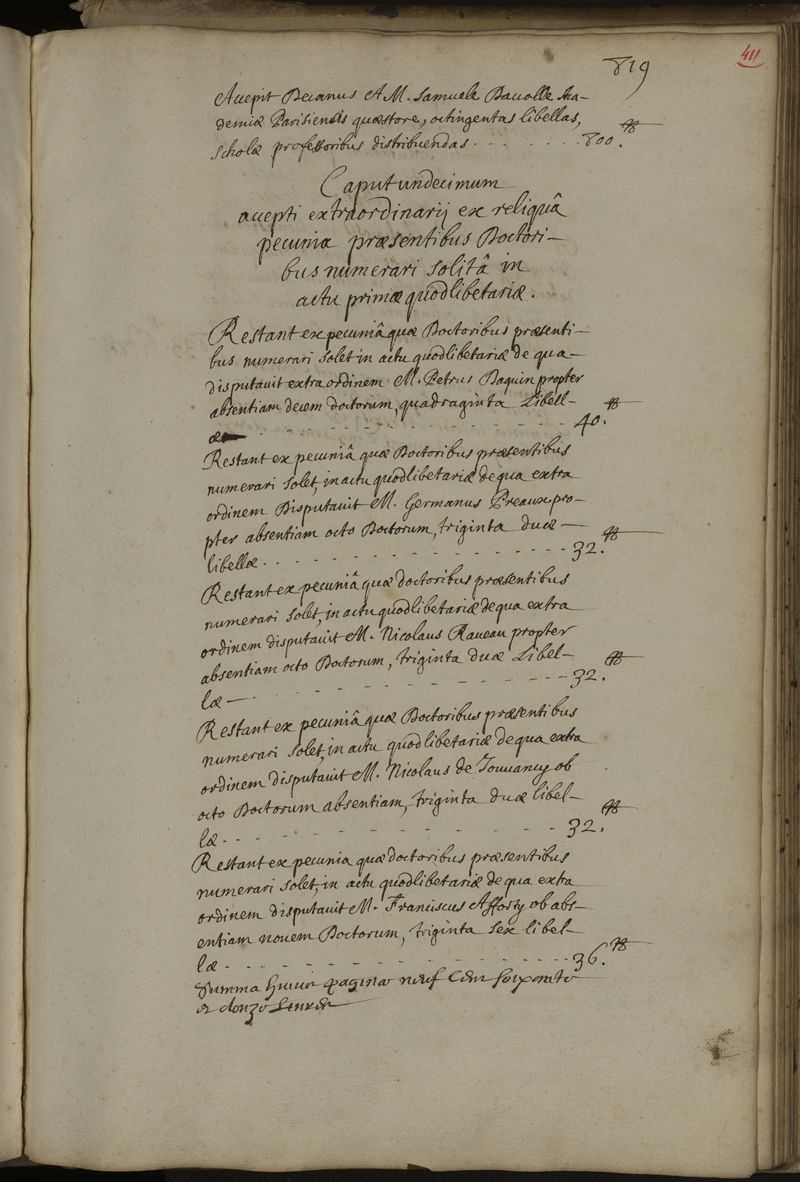 819
411
Accepit Decanus A M. Samuele Dacolle Aca-
demiæ Parisiensis quæstore, octingentas libellas,
scholæ professoribus distribuendas - - - - - - - 800. ₶
Caput undecimum
accepti extraordinarij ex reliquâ
pecuniæ præsentibus Doctori-
bus numerari solitâ in
actu primæ quodlibetariæ.
Restant ex pecuniâ quæ Doctoribus præsenti-
bus numerari solet in actu quodlibetariæ de qua
disputauit extra ordinem M. Petrus Daquin propter
absentiam decem doctorum, quadraginta Libell-
æ - - - - - - - - - - 40. ₶
Restant ex pecuniâ quæ Doctoribus præsentibus
numerari solet, in actu quodlibetariæ de qua extra
ordinem Disputauit M. Germanus Preaux pro-
pter absentiam octo Doctorum, triginta duæ
libellæ - - - - - - - - - - 32. ₶
Restant ex pecuniâ quæ doctoribus præsentibus
numerari solet, in actu quodlibetariæ de qua extra
ordinem disputauit M. Nicolaus Raueau propter
absentiam octo Doctorum, triginta duæ Libel-
læ - - - - - - - - - - 32. ₶
Restant ex pecuniâ quæ Doctoribus præsentibus
numerari solet, in actu quodlibetariæ de qua extra
ordinem disputauit M. Nicolaus de Jouuancy ob
octo Doctorum absentiam, triginta duæ libel-
læ - - - - - - - - - - 32. ₶
Restant ex pecunia quæ doctoribus præsentibus
numerari solet, in actu quodlibetariæ de qua extra
ordinem disputauit M. Franciscus Afforty ob abs-
entiam nouem Doctorum, triginta sex libel-
læ - - - - - - - - - - 36. ₶
Summa huius paginæ neuf cens soixante
et douze liures